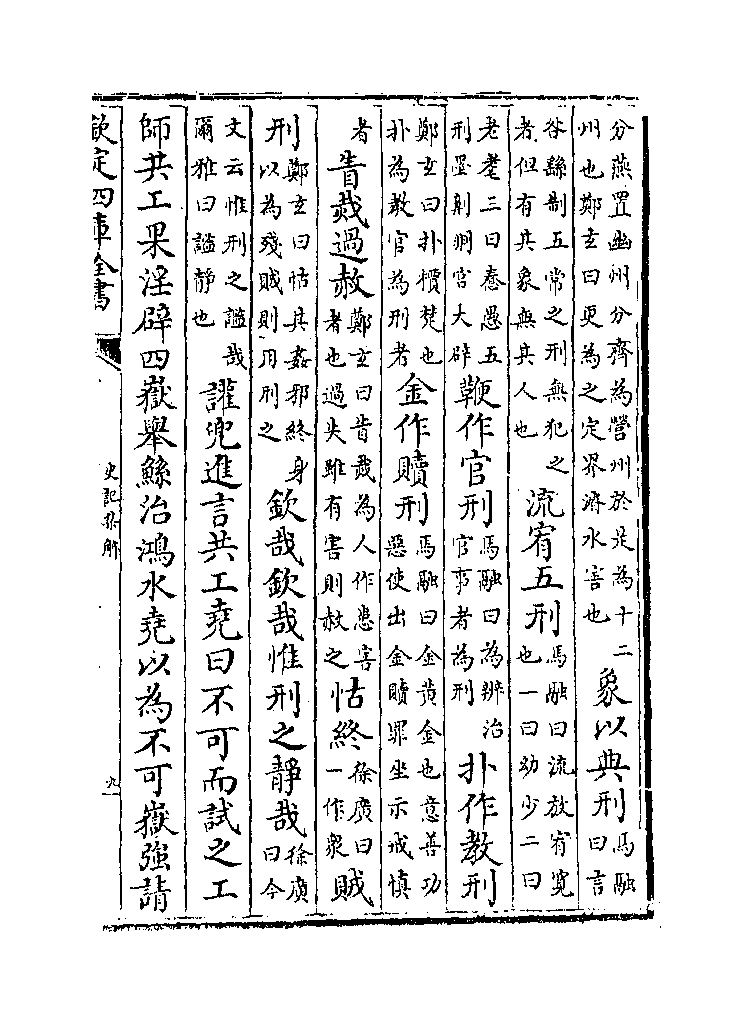 分燕置幽州分齊為營州於是為十二州也鄭玄曰更為之定界濬水害也象以典刑馬融曰言
咎繇制五常之刑無犯之者但有其象無其人也流宥五刑馬融曰流放宥寬也一曰幼少二曰
老耄三曰惷愚五刑墨劓剕宮大辟鞭作官刑馬融曰為辨治官事者為刑扑作教刑
鄭玄曰扑檟楚也扑為教官為刑者金作贖刑馬融曰金黃金也意善功惡使出金贖罪坐示戒慎
者眚烖過赦鄭玄曰眚烖為人作患害者也過失雖有害則赦之怙終徐廣曰一作衆賊
刑鄭玄曰怙其姦邪終身以為殘賊則用刑之欽哉欽哉惟刑之靜哉徐廣曰今
文云惟刑之謐哉爾雅曰謐靜也讙兜進言共工堯曰不可而試之工
師共工果淫辟四嶽舉鯀治鴻水堯以為不可嶽強請
欽定四庫全書
史記集解
九